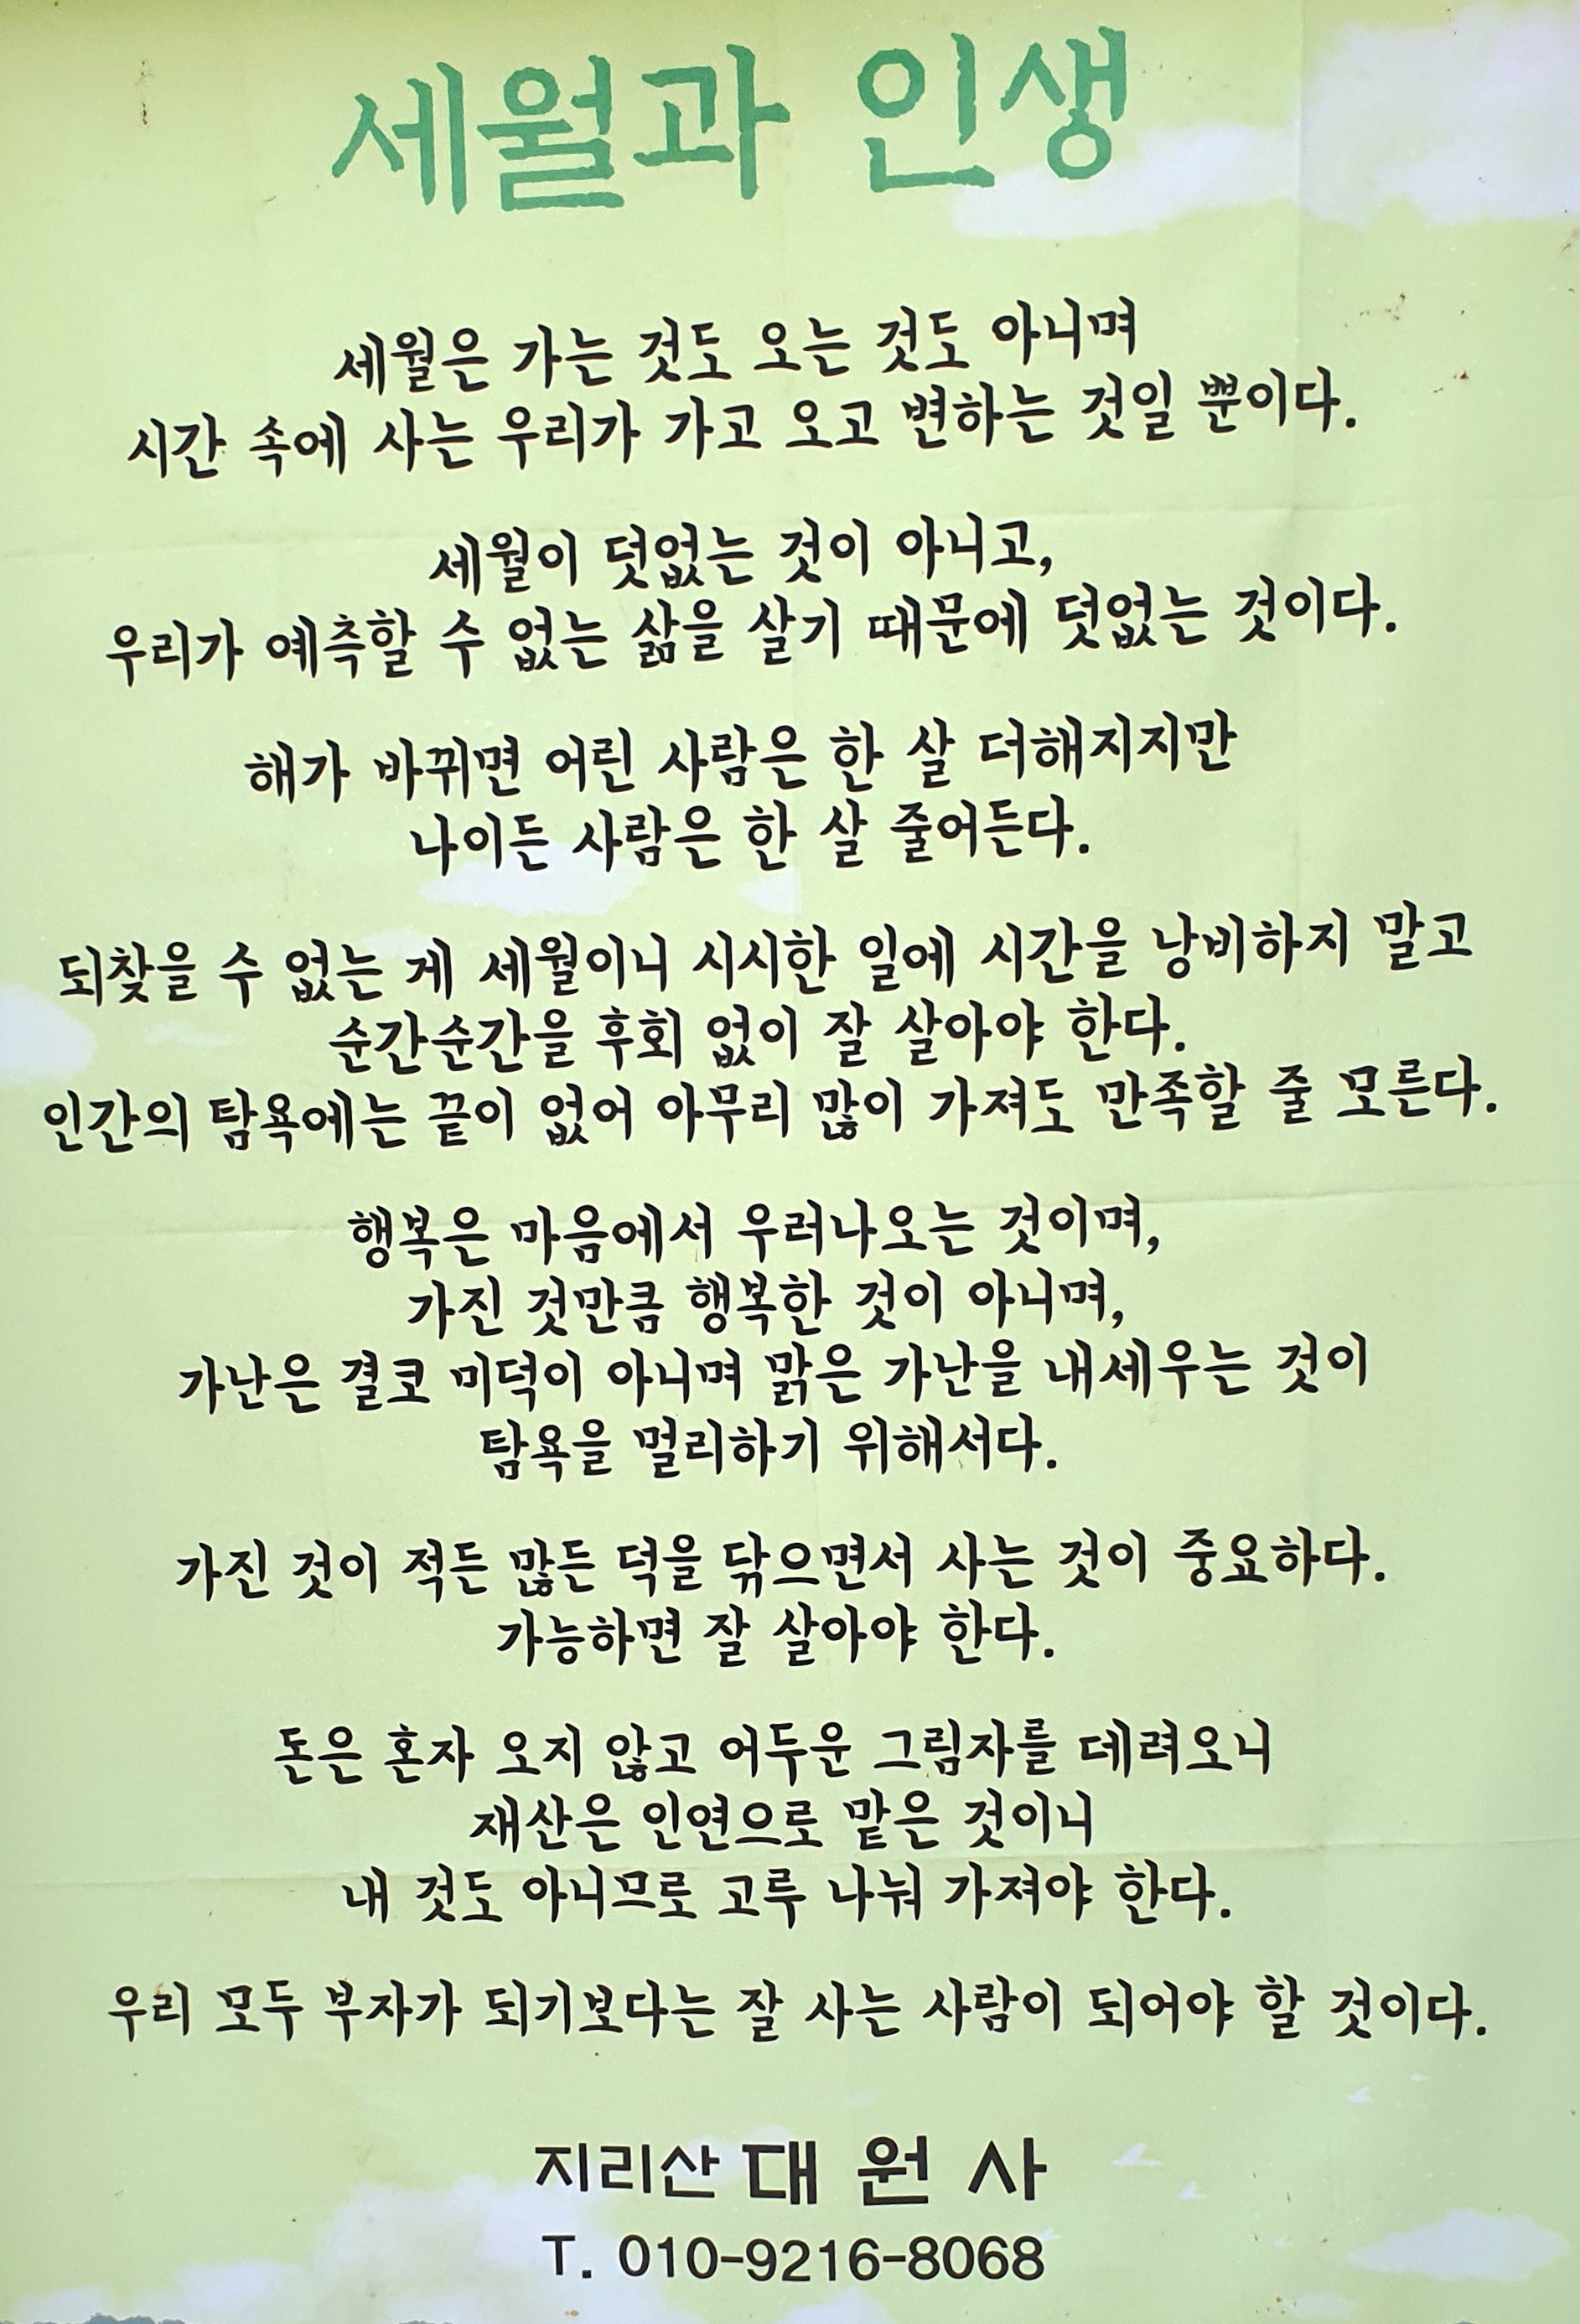 세월과 인생
세월은 가는 것도 오는 것도 아니며
시간 속에 사는 우리가 가고 오고 변하는 것일 뿐이다.
세월이 덧없는 것이 아니고,
우리가 예측할 수 없는 삶을 살기 때문에 덧없는 것이다.
해가 바뀌면 어린 사람은 한 살 더해지지만
나이든 사람은 한 살 줄어든다.
되찾을 수 없는 게 세월이니 시시한 일에 시간을 낭비하지 말고
순간순간을 후회 없이 잘 살아야 한다.
인간의 탐욕에는 끝이 없어 아무리 많이 가져도 만족할 줄 모른다.
행복은 마음에서 우러나오는 것이며,
가진 것만큼 행복한 것이 아니며,
가난은 결코 미덕이 아니며 맑은 가난을 내세우는 것이
탐욕을 멀리하기 위해서다.
가진 것이 적든 많든 덕을 닦으면서 사는 것이 중요하다.
가능하면 잘 살아야 한다.
돈은 혼자 오지 않고 어두운 그림자를 데려오니
재산은 인연으로 맡은 것이니
내 것도 아니므로 고루 나눠 가져야 한다.
우리 모두 부자가 되기보다는 잘 사는 사람이 되어야 할 것이다.
지리산 대 원 사
T. 010-9216-8068